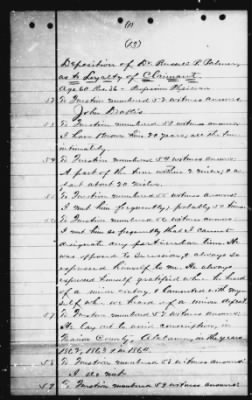 (13)
Deposition of Dr. Russell P. Palmer,
as to Loyalty of Claimant.
Age 60 Res. Profession Physician
52 To Question numbered 52 witness answers:
John
53 To Question numbered 53 witness answers:
I have known him 20 years, all the time
intimately.
54 To Question numbered 54 witness answers:
A part of the time within 2 miles, & a
part about 20 miles.
55 To Question numbered 55 witness answers:
I met him frequently, probably 50 times.
56 To Question numbered 56 witness answers:
I met him so frequently that I cannot
designate any particular time. He
was opposed to Secession, & always so
expressed himself to me. He always
expressed himself gratified when he heard
of a union victory, & lamented with my
self when we heard of a union defeat.
57 To Question numbered 57 witness answers:
He lay out to avoid conscription, in
County, Alabama, in the years
1862, 1863 & in 1864.
58 To Question numbered 58 witness answers:
I do not.
59 To Question numbered 59 witness answers: